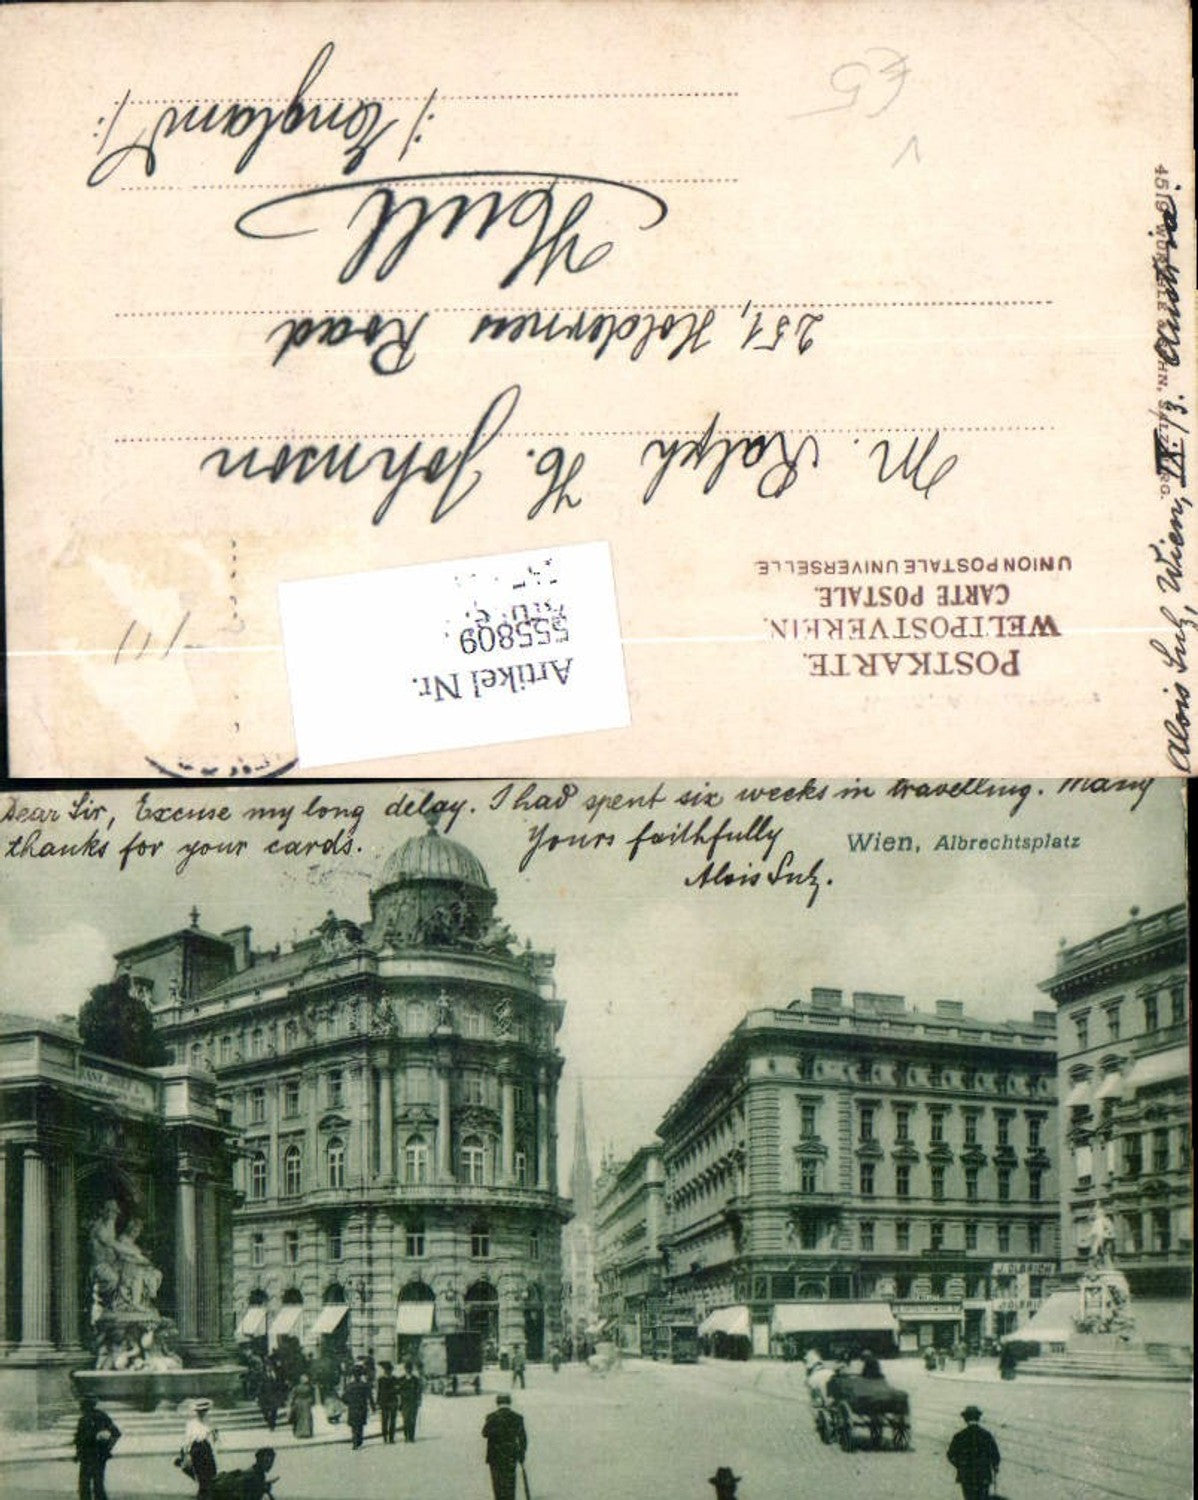 POSTKARTE.
WELTPOSTVEREIN.
CARTE POSTALE.
UNION POSTALE UNIVERSELLE.
Artikel Nr.
555809
M. Ralph H. Johnson
251, Holderness Road
Hull
:/ England /:
£5
Alois Sulz, Wien, IX/3. Austria.
Dear Sir, Excuse my long delay. I had spent six weeks in travelling. Many
thanks for your cards.
Yours faithfully
Alois Sulz.
Wien, Albrechtsplatz
J. OLBRICH